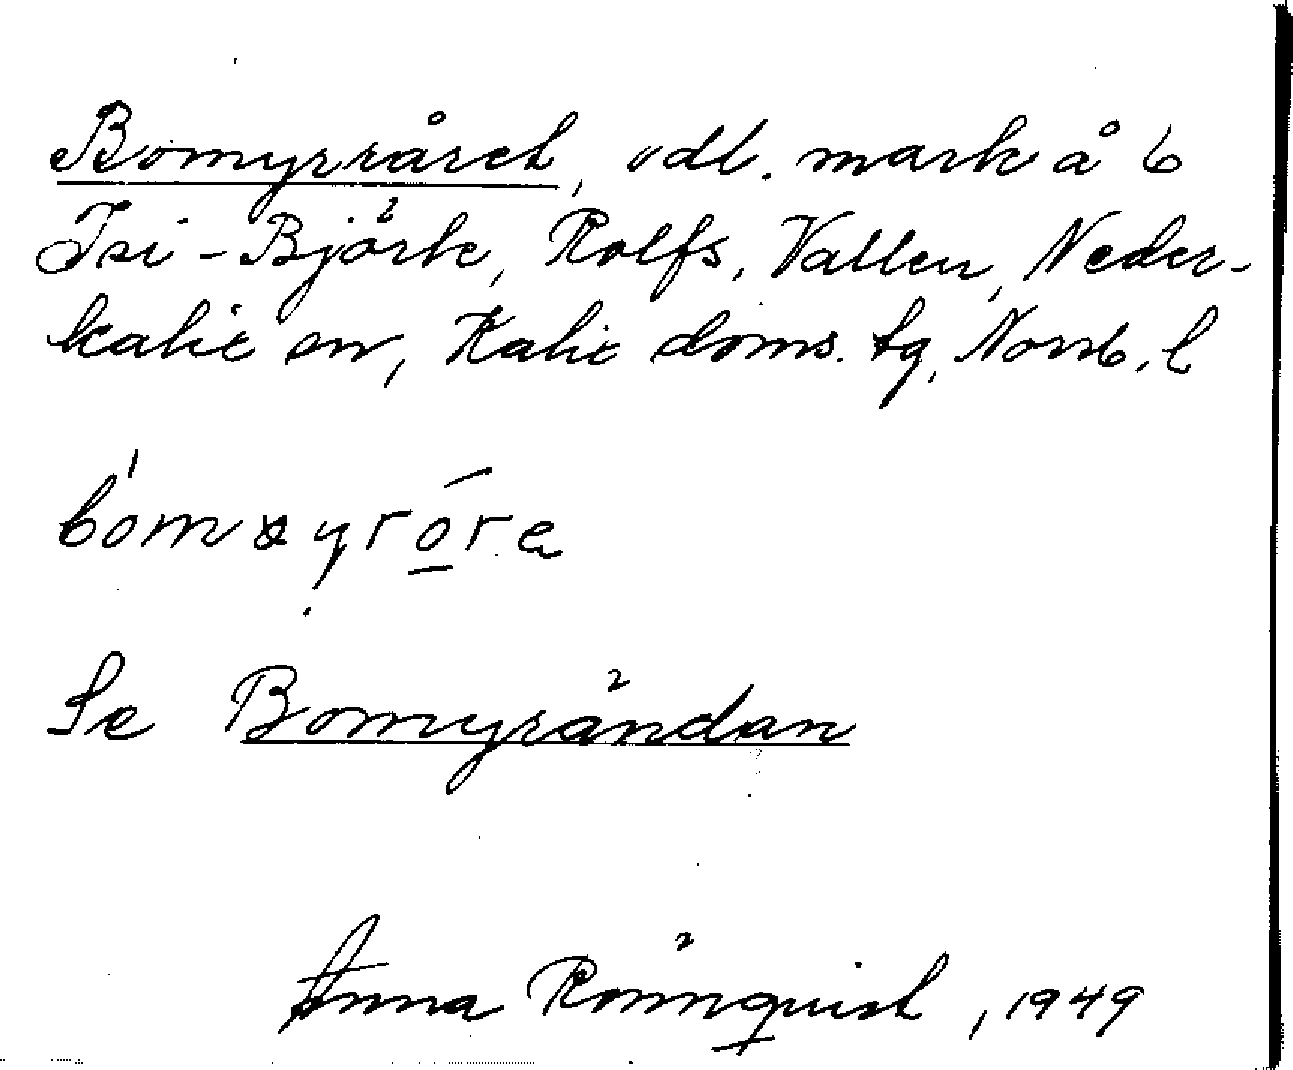 Bomyrråret, odl. mark å 6
Isi-Björk, Rolfs, Vallen, Neder-
kalix sn, Kalix doms. tg, Norrb. l
Se Bomyrändan
Anna Rönnquist, 1949